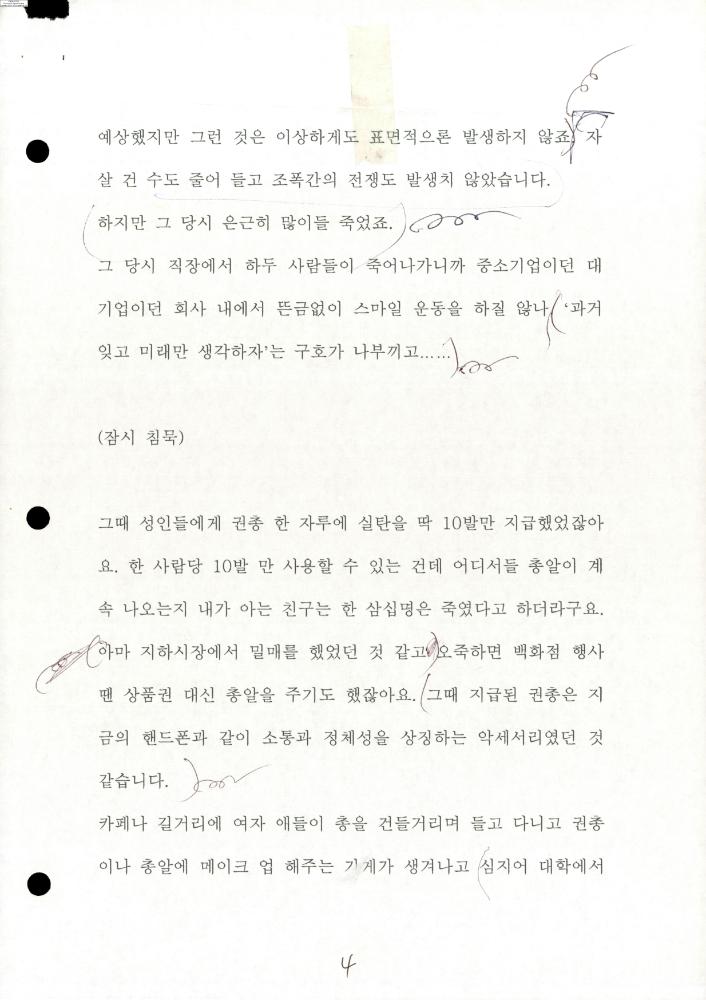 예상했지만 그런 것은 이상하게도 표면적으론 발생하지 않죠, 자
살 건 수도 줄어 들고 조폭간의 전쟁도 발생치 않았습니다.
하지만 그 당시 은근히 많이들 죽었죠.
그 당시 직장에서 하두 사람들이 죽어나가니까 중소기업이던 대
기업이던 회사 내에서 뜬금없이 스마일 운동을 하질 않나, '과거
잊고 미래만 생각하자'는 구호가 나부끼고......
(잠시 침묵)
그때 성인들에게 권총 한 자루에 실탄을 딱 10발만 지급했었잖아
요. 한 사람당 10발 만 사용할 수 있는 건데 어디서들 총알이 계
속 나오는지 내가 아는 친구는 한 삼십명은 죽였다고 하더라구요.
아마 지하시장에서 밀매를 했었던 것 같고 오죽하면 백화점 행사
땐 상품권 대신 총알을 주기도 했잖아요. 그때 지급된 권총은 지
금의 핸드폰과 같이 소통과 정체성을 상징하는 악세서리였던 것
같습니다.
카페나 길거리에 여자 애들이 총을 건들거리며 들고 다니고 권총
이나 총알에 메이크 업 해주는 가게가 생겨나고 심지어 대학에서
4